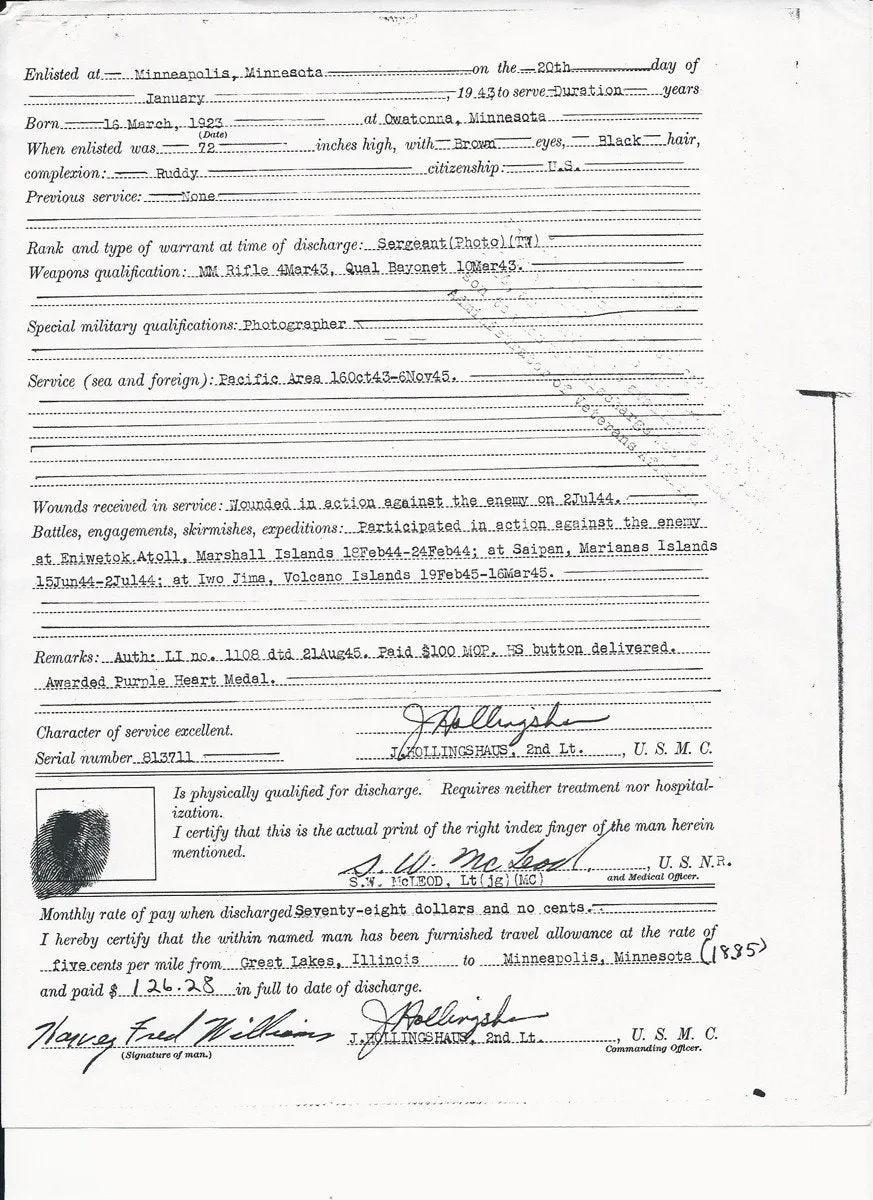 Enlisted at Minneapolis, Minnesota on the 20th day of
January, 1943 to serve Duration years
Born 16 March, 1923 at Owatonna, Minnesota
(Date)
When enlisted was 72 inches high, with Brown eyes, Black hair,
complexion: Ruddy citizenship: U.S.
Previous service: None
Rank and type of warrant at time of discharge: Sergeant(Photo)(TW)
Weapons qualification: MM Rifle 4Mar43, Qual Bayonet 10Mar43.
Special military qualifications: Photographer
Service (sea and foreign): Pacific Area 16Oct43-6Nov45.
Administrator of Veterans
Wounds received in service: Wounded in action against the enemy on 2Jul44.
Battles, engagements, skirmishes, expeditions: Participated in action against the enemy
at Eniwetok Atoll, Marshall Islands 18Feb44-24Feb44; at Saipan, Marianas Islands
15Jun44-2Jul44; at Iwo Jima, Volcano Islands 19Feb45-16Mar45.
Remarks: Auth: LI no. 1108 dtd 21Aug45. Paid $100 MOP. HS button delivered.
Awarded Purple Heart Medal.
Character of service excellent.
J Hollingshaus
Serial number 813711 J. HOLLINGSHAUS, 2nd Lt., U. S. M. C.
Is physically qualified for discharge. Requires neither treatment nor hospital-
ization.
I certify that this is the actual print of the right index finger of the man herein
mentioned.
S. W. McLeod, U. S. N.R.
S.W. McLEOD, Lt(jg)(MC) and Medical Officer.
Monthly rate of pay when discharged Seventy-eight dollars and no cents.
I hereby certify that the within named man has been furnished travel allowance at the rate of
five cents per mile from Great Lakes, Illinois to Minneapolis, Minnesota (1885)
and paid $ 126.28 in full to date of discharge.
Harvey Fred Williams J Hollingshaus
(Signature of man.) J. HOLLINGSHAUS, 2nd Lt., U. S. M. C.
Commanding Officer.